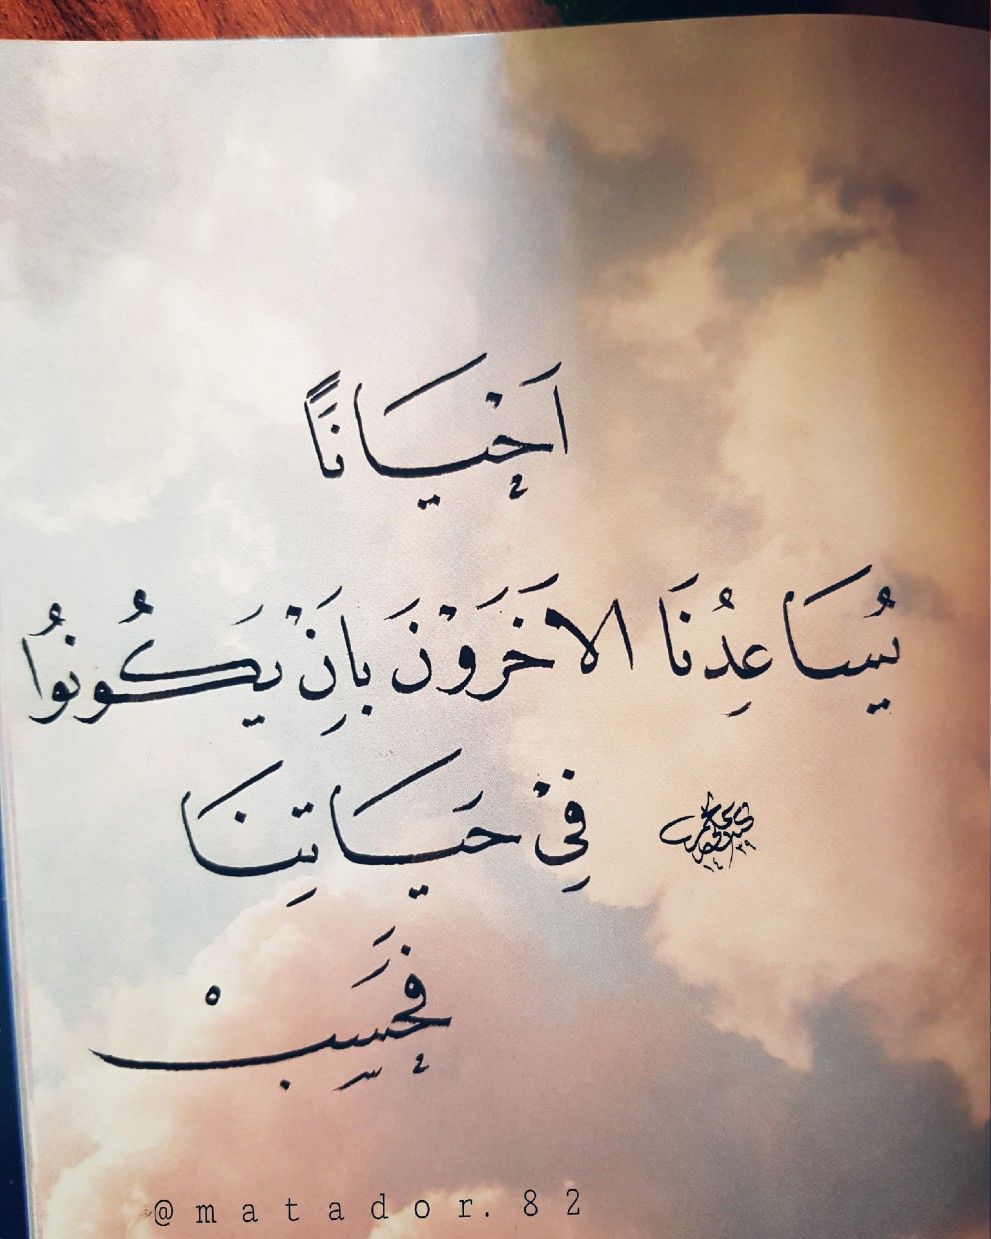 اَحْيَانًا
يُسَاعِدُنَا الاَخَرَوْنَ بِاَنْ يَكُونُوا
فِيْ حَيَاتِنَا
فَحَسِبْ
١٤٣٩
@matador.82